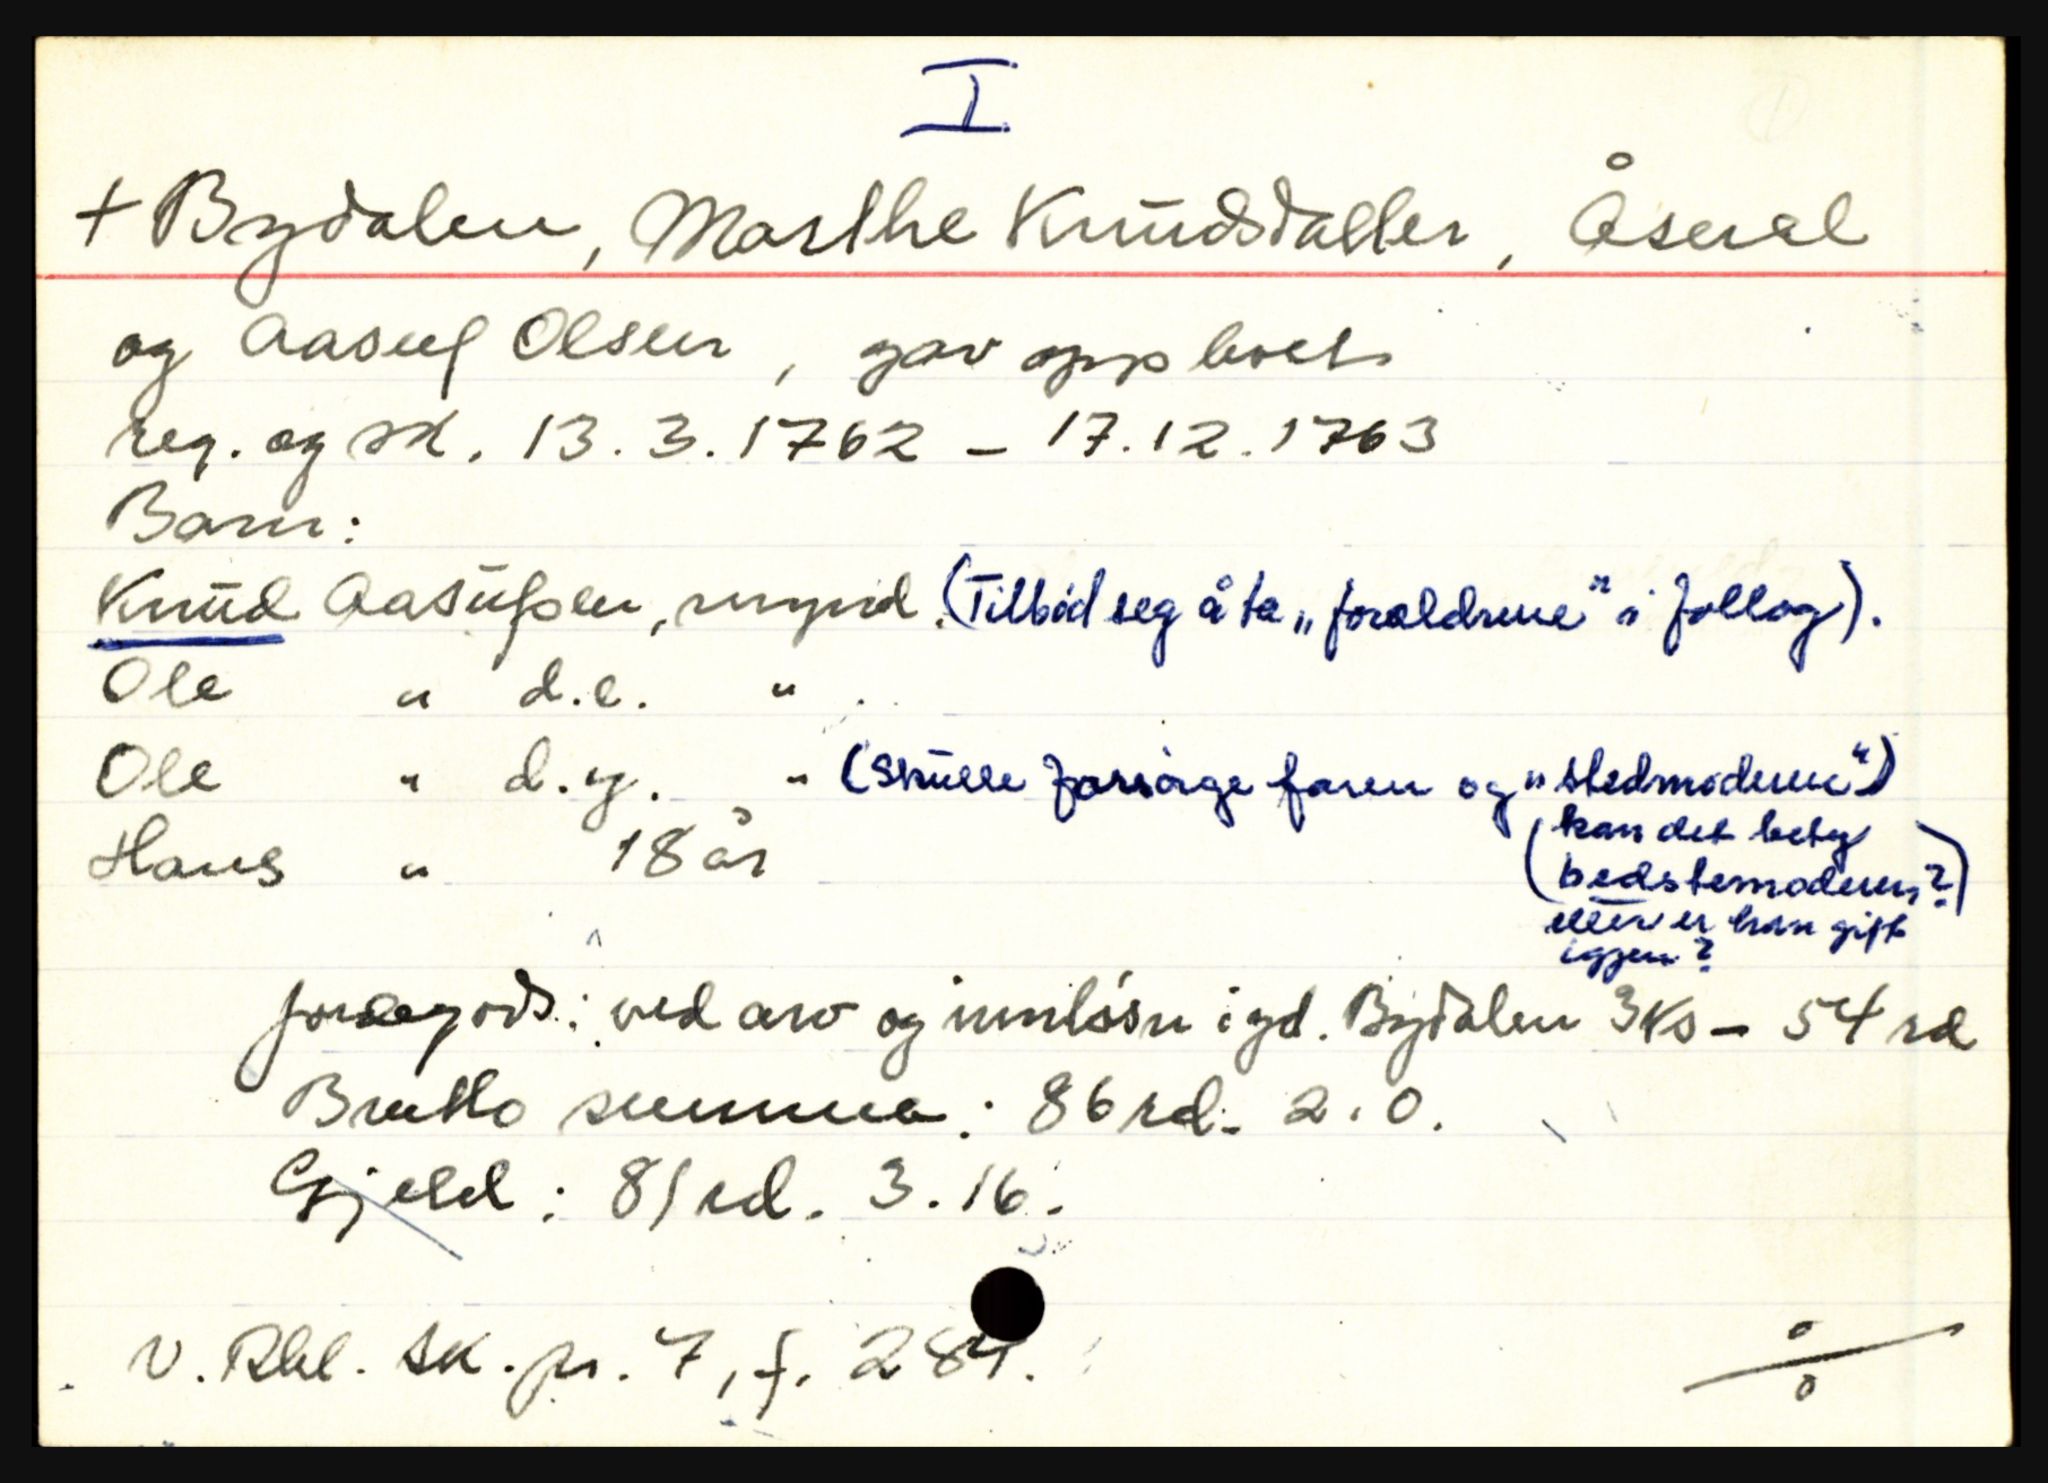 I
+ Bydalen, Marthe Knudsdatter, Åseral
og Aasulf Olsen, gav opp boet
reg. og sk. 13.3.1762 - 17.12.1763
Barn:
Knud Aasulfsen, mynd. (Tilbød seg å ta „foreldrene" i follog).
Ole " d.e. "
Ole " d.y. " (skulle forsørge faren og „stedmoderen")
Hans " 18 år
(kan det bety
bedstemoderen?)
eller er han gift
igjen?
jordegods: ved arv og innløsn i gd. Bydalen 3 ks - 54 rd
Brutto summa: 86 rd. 2.0.
Gjeld: 81 rd. 3.16.
V. Rbl. sk.pr. 7, f. 284.